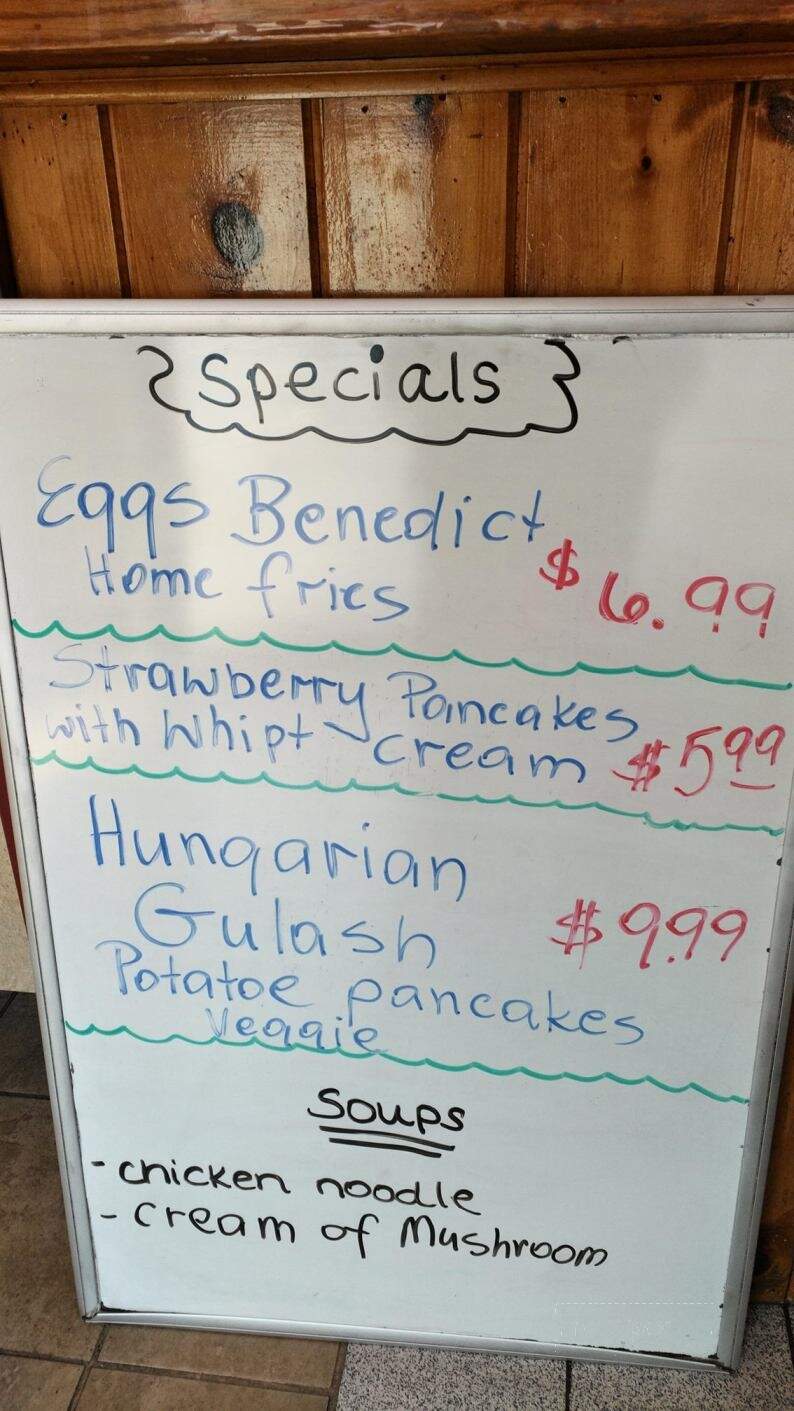 Specials
Eggs Benedict
Home fries $6.99
Strawberry Pancakes
with Whipt cream $5.99
Hungarian
Gulash $9.99
Potatoe pancakes
Veggie
Soups
- chicken noodle
- cream of Mushroom